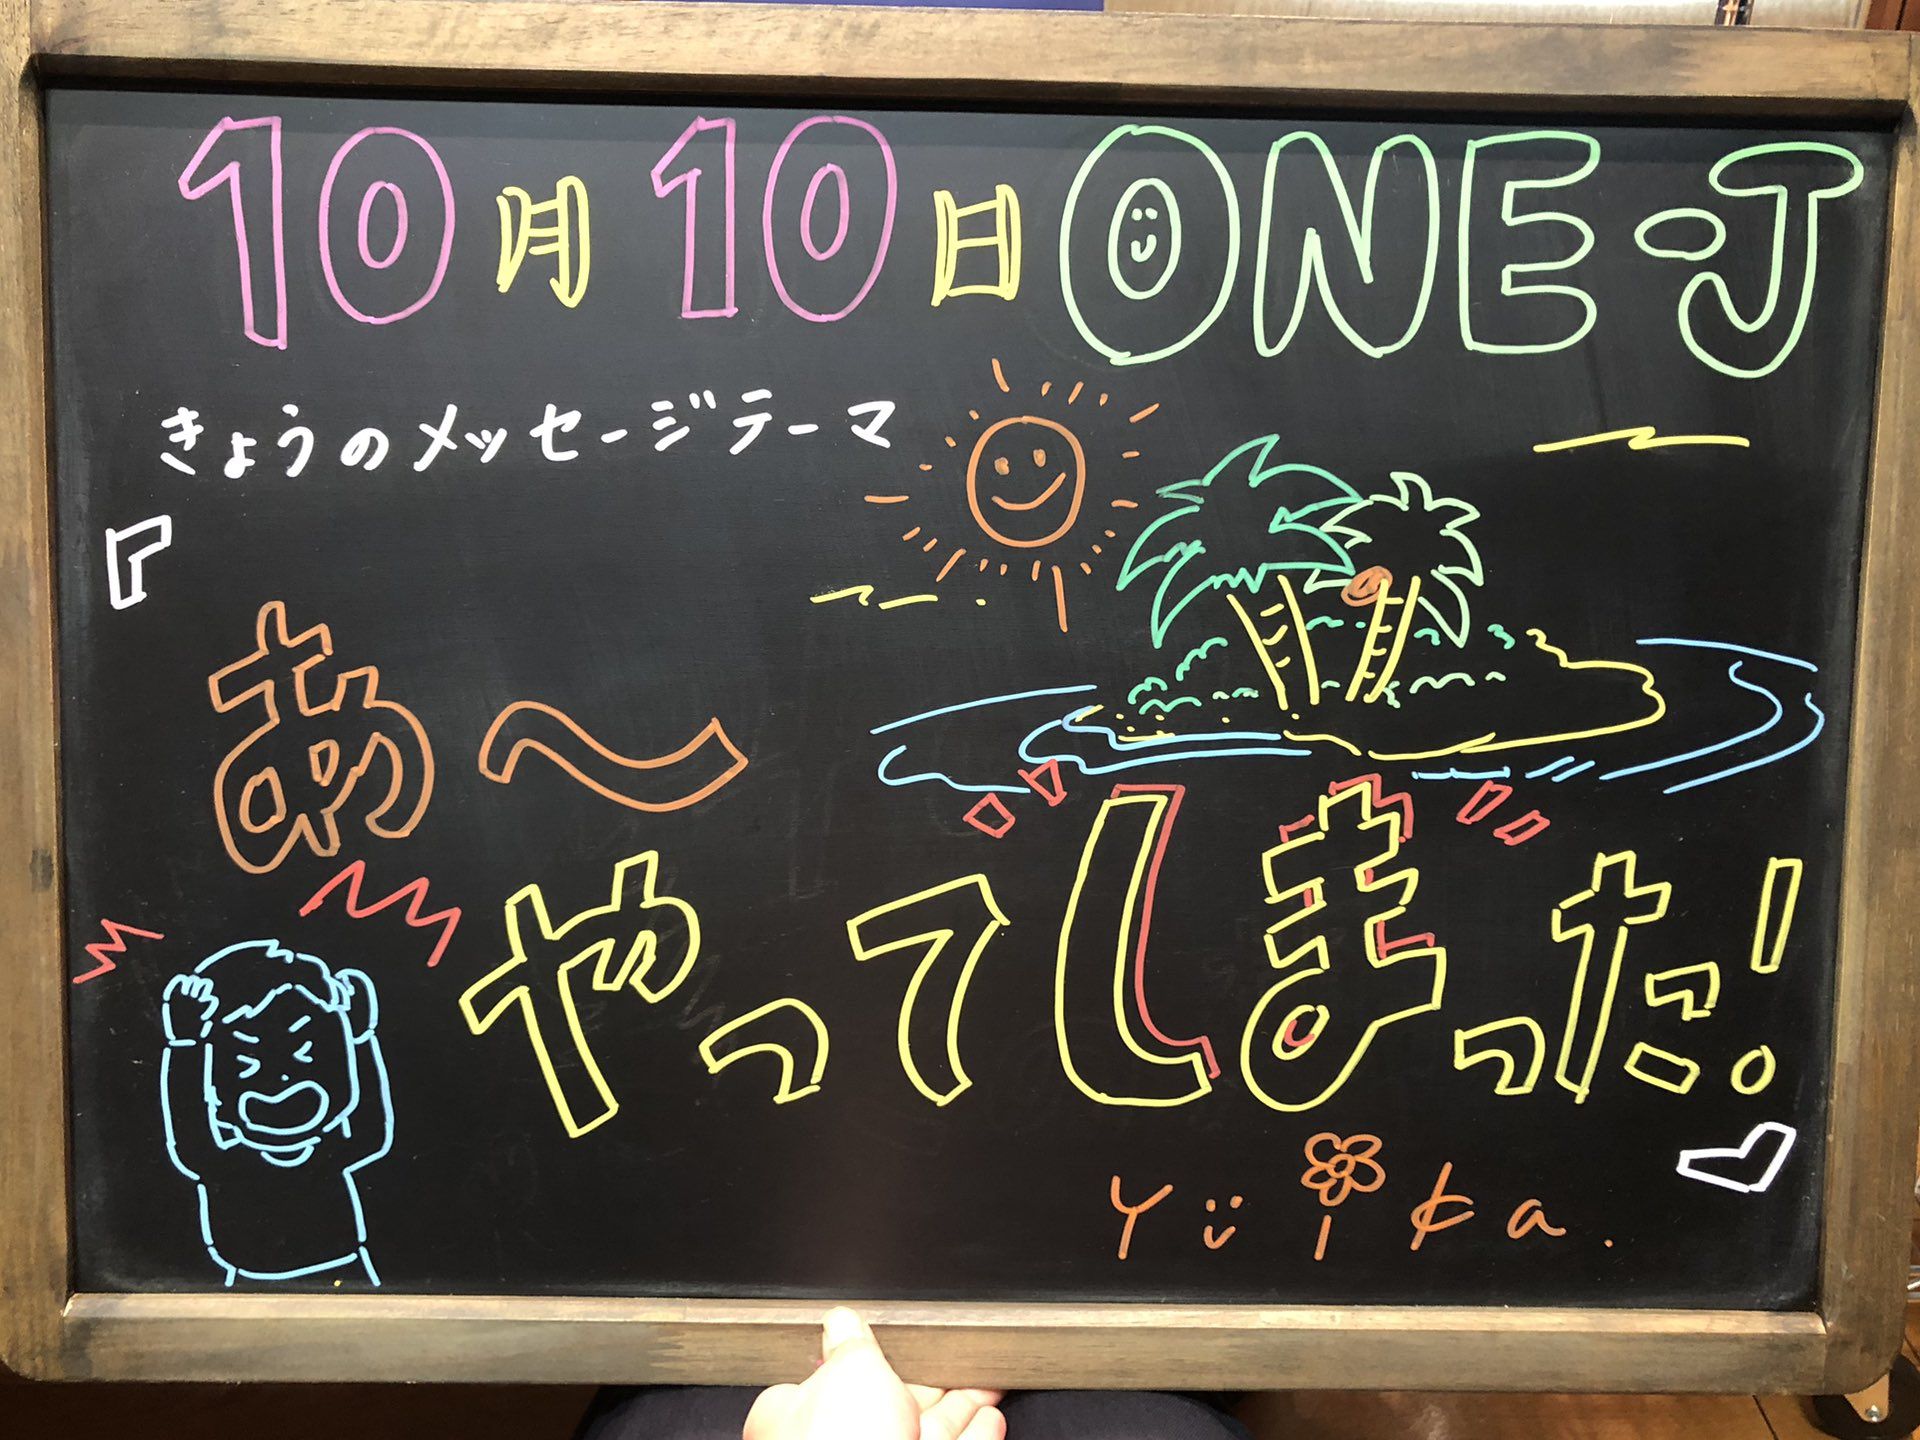 10月10日 ONE-J
きょうのメッセージテーマ
『あ〜
やってしまった!』
Yüika.